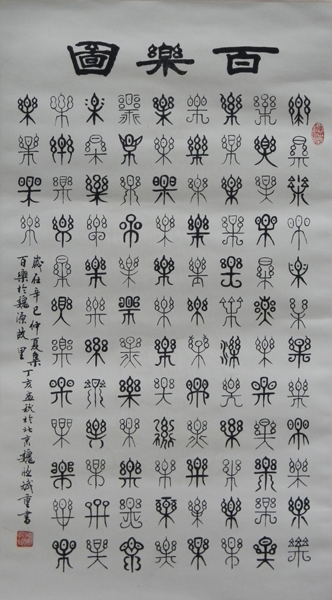 百樂圖
樂樂樂樂樂樂樂樂樂樂樂樂
樂樂樂樂樂樂樂樂樂樂樂樂
樂樂樂樂樂樂樂樂樂樂樂樂
樂樂樂樂樂樂樂樂樂樂樂樂
樂樂樂樂樂樂樂樂樂樂樂樂
樂樂樂樂樂樂樂樂樂樂樂樂
樂樂樂樂樂樂樂樂樂樂樂樂
樂樂樂樂樂樂樂樂樂樂樂樂
樂樂樂樂
歲在辛巳仲夏集
百樂於魏源故里
丁亥孟秋於北京魏重書